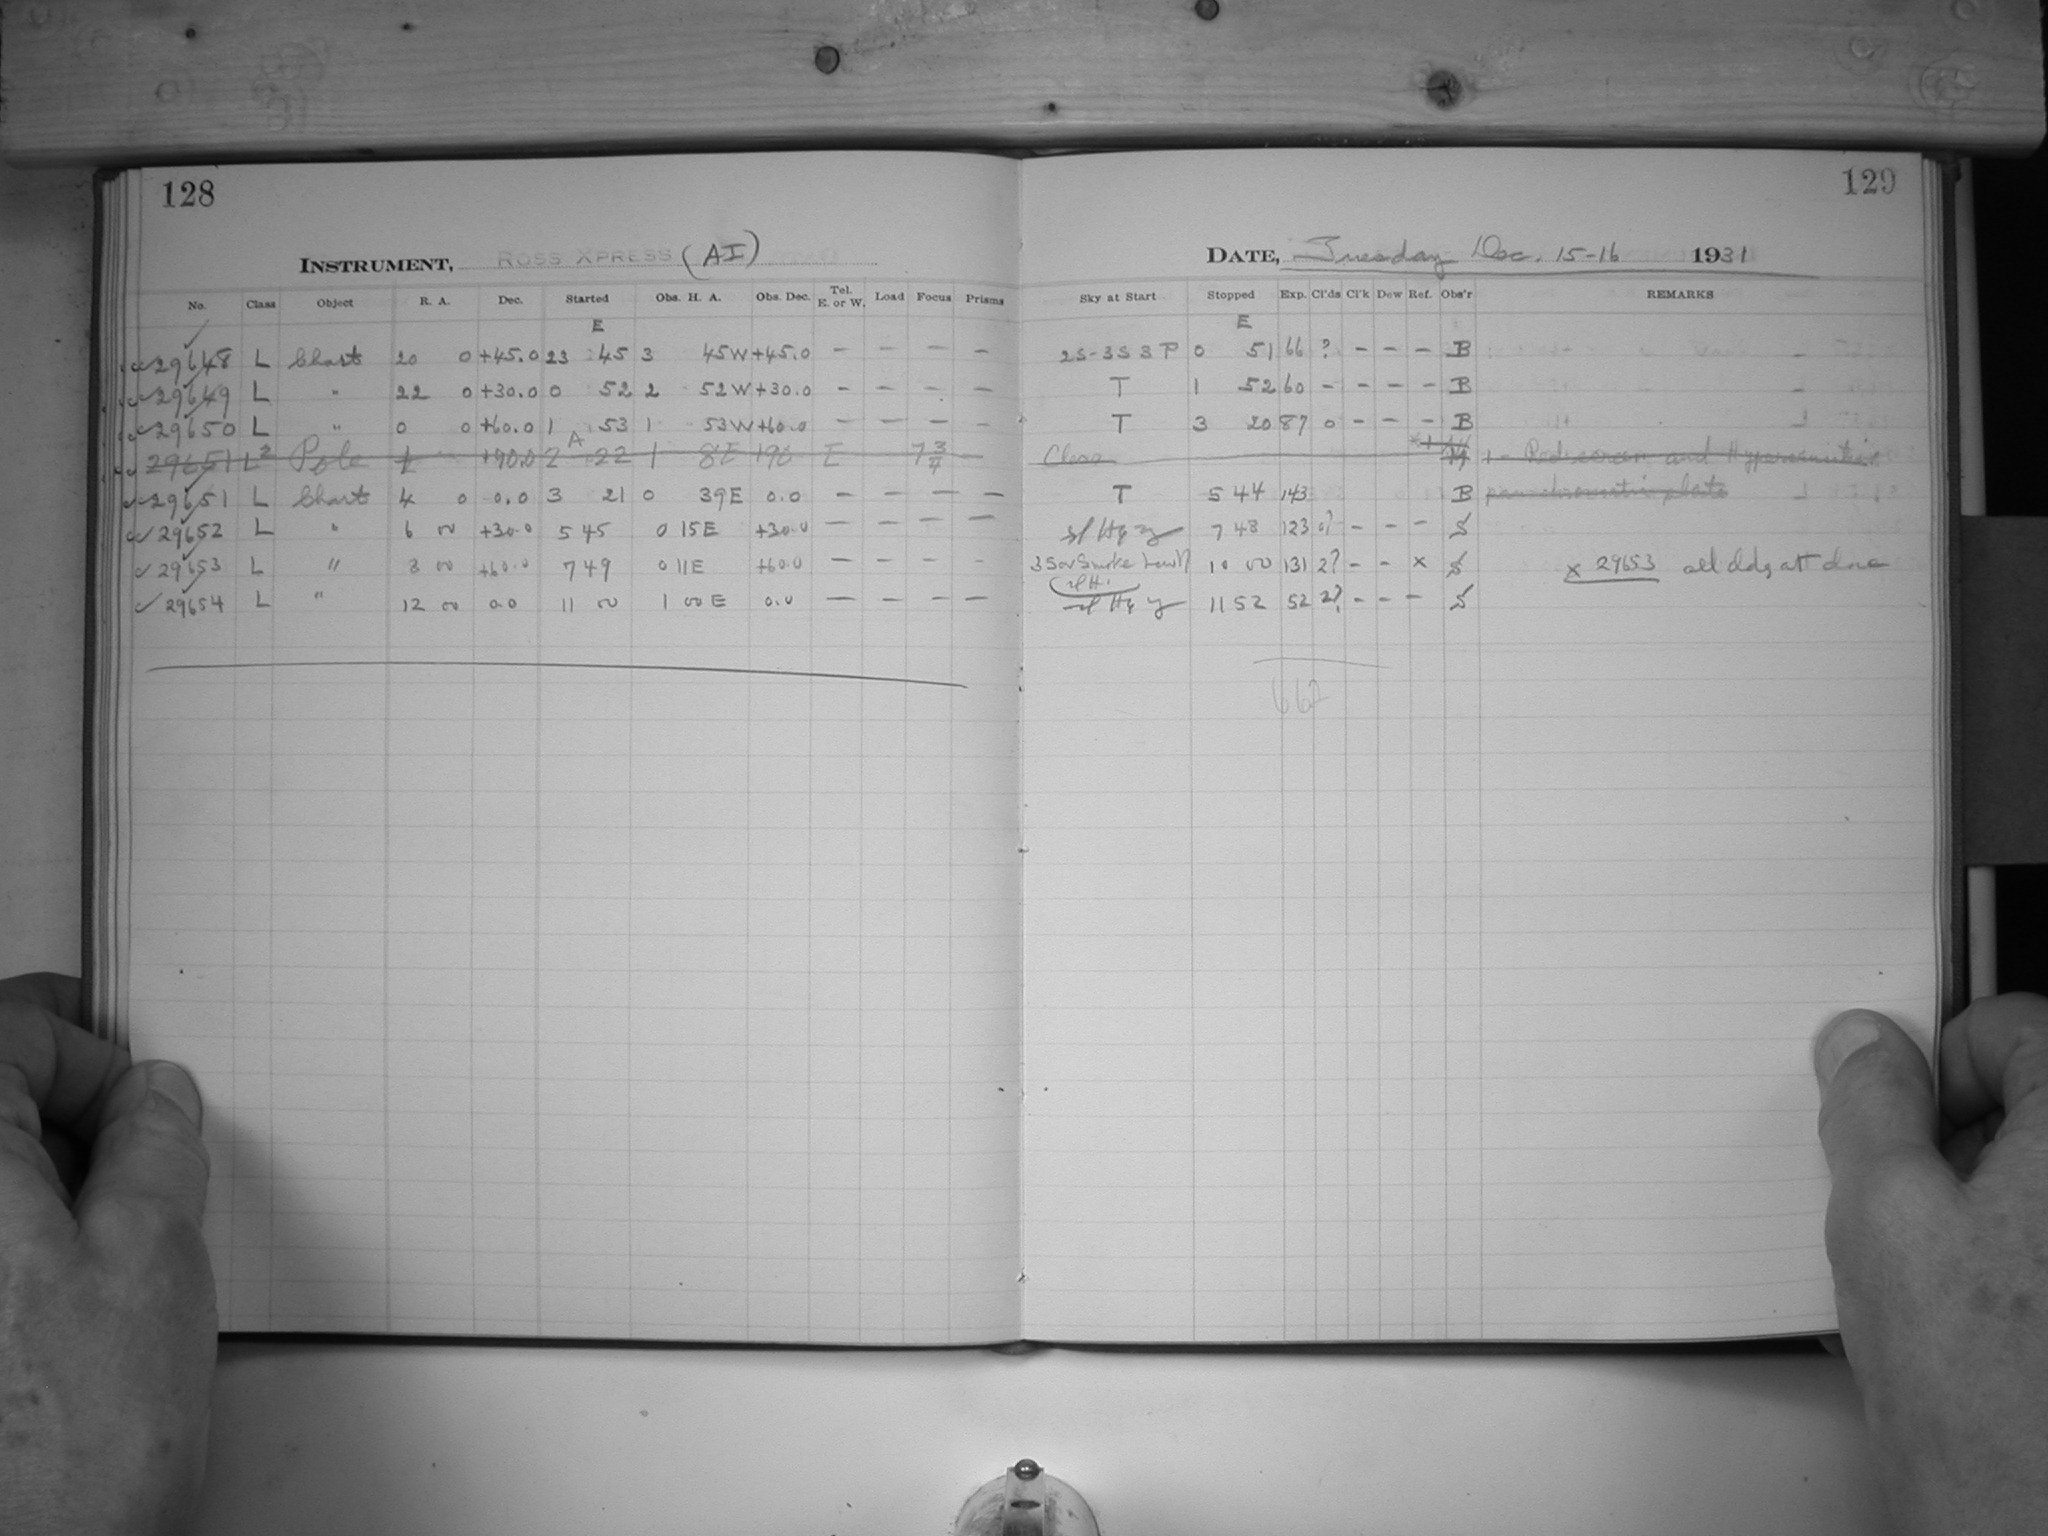 128
129
INSTRUMENT, ROSS XPRESS (AI)
DATE, Tuesday Dec. 15-16 1931
No. Class Object R. A. Dec. Started Obs. H. A. Obs. Dec. Tel. E. or W. Load Focus Prisms Sky at Start Stopped Exp. Cl'ds Cl'k Dew Ref. Obs'r REMARKS
E E
29648 L Chart 20 0 +45.0 23 45 3 45W +45.0 – – – – 2S-3S 3P 0 51 66 ? – – – B
29649 L " 22 0 +30.0 0 52 2 52W +30.0 – – – – T 1 52 60 – – – – B
29650 L " 0 0 +60.0 1 53 1 53W +60.0 – – – – T 3 20 87 0 – – – B
A
29651 L² Pole 1 +90.0 2 22 1 8E +90 E 7 3/4 – Clear 1 – Red screen and Hypersensitive
29651 L Chart 4 0 0.0 3 21 0 39E 0.0 – – – – T 5 44 143 B panchromatic plate
29652 L " 6 00 +30.0 5 45 0 15E +30.0 – – – – 7 48 123 0? – – – S
29653 L " 8 00 +60.0 7 49 0 11E +60.0 – – – – 3S or Smoke 10 00 131 2? – – × S × 29653 all
29654 L " 12 00 0.0 11 00 1 00E 0.0 – – – – 11 52 52 2? – – – S
662